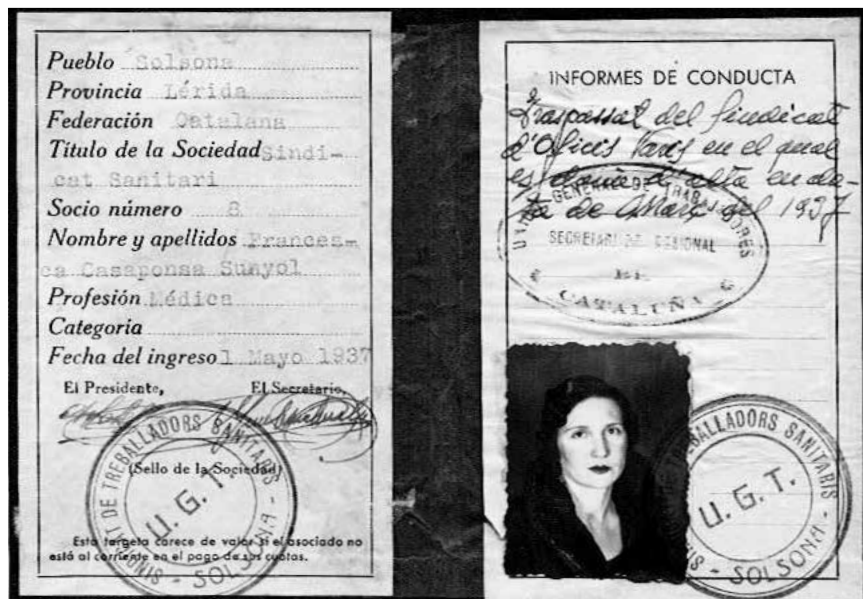 Pueblo Solsona
Provincia Lérida
Federación Catalana
Título de la Sociedad Sindi-
cat Sanitari
Socio número 8
Nombre y apellidos Frances-
ca Casaponsa Sunyol
Profesión Médica
Categoria
Fecha del ingreso 1 Mayo 1937
El Presidente, El Secretario,
(Sello de la Sociedad)
SINDICAT DE TREBALLADORS SANITARIS
U. G. T.
- SOLSONA -
Esta targeta carece de valor si el asociado no
está al corriente en el pago de sus cuotas.
INFORMES DE CONDUCTA
Traspassat del Sindicat
d'Oficis Varis en el qual
es dona d'alta en da-
ta de Març del 1937
GENERAL DE TRABAJADORES
SECRETARIADO REGIONAL
DE
CATALUÑA
TREBALLADORS SANITARIS
U. G. T.
- SOLSONA -